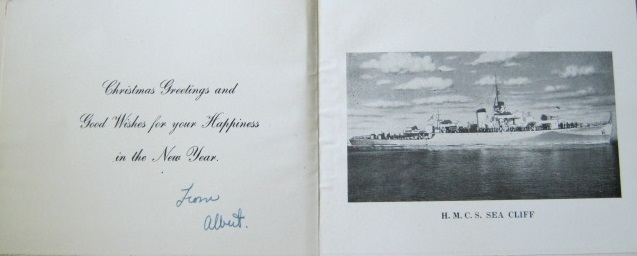 Christmas Greetings and
Good Wishes for your Happiness
in the New Year.
From
Albert.
H. M. C. S. SEA CLIFF